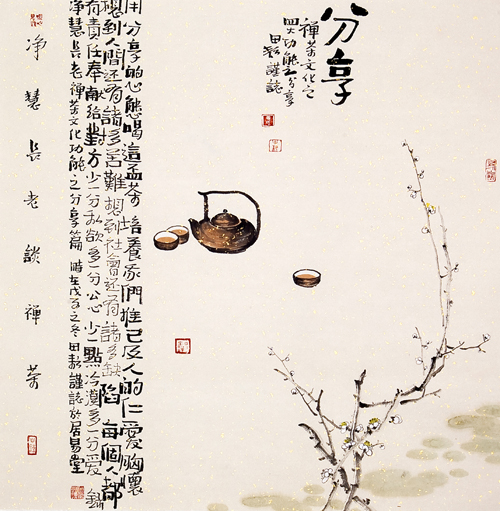 分享
禪茶文化之
四大功能之分享
田謹誌
用分享的心態喝這盃茶培養我們推己及人的仁愛胸懷
想到人間還有諸多苦難想到社會還有諸多缺陷每個人都
有責任奉獻給對方少一分私欲多一分公心少一點冷漠多一分愛錄
净慧長老禪茶文化功能之分享篇時在戊子之冬田謹誌於居易堂
净慧長老談禪茶